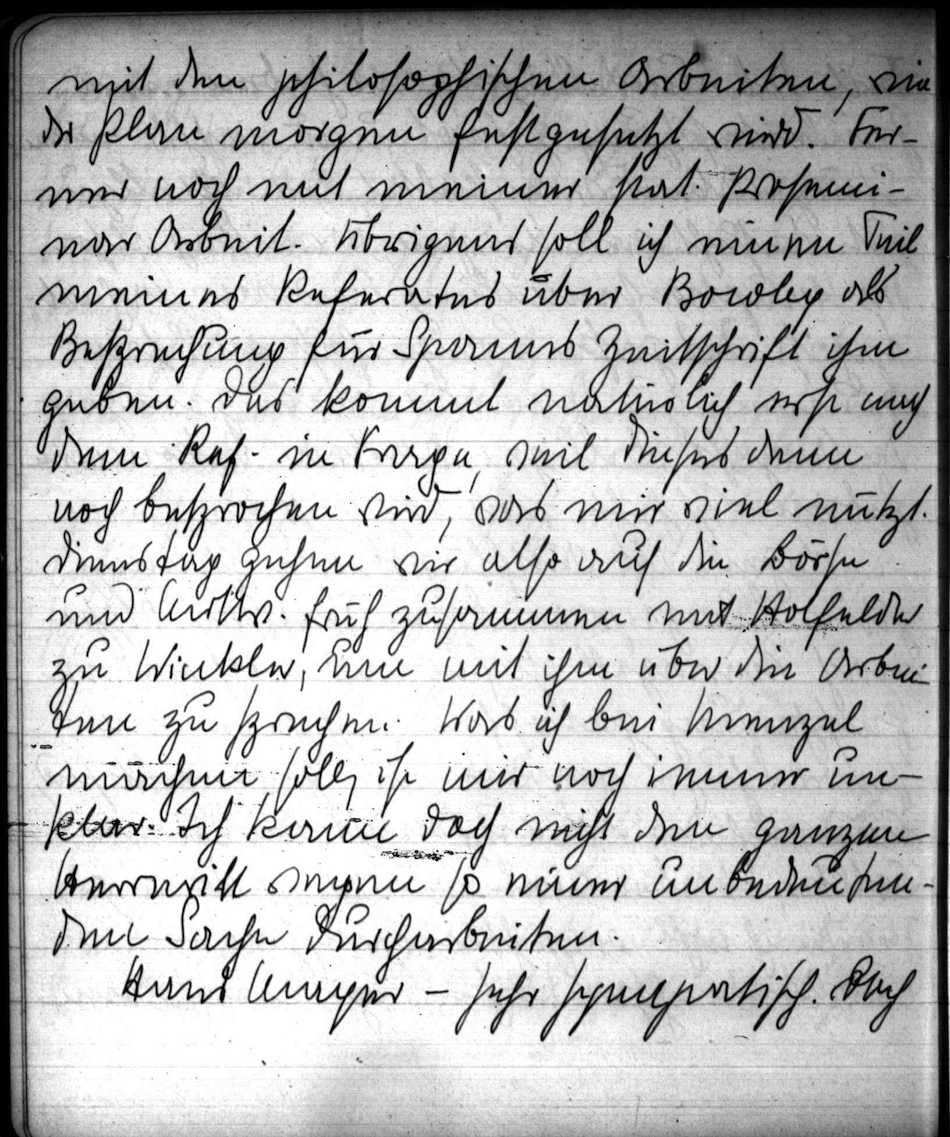 mit den philosophischen Arbeiten, wie
der Plan morgen festgesetzt wird. Fer-
ner noch mit meiner stat. Prosemi-
nar Arbeit. Übrigens soll ich einen Teil
meines Referates über Bowley als
Besprechung für Spanns Zeitschrift ihm
geben. Das kommt natürlich erst nach
dem Ref. in Frage, weil dieses dann
noch besprochen wird, was mir viel nützt.
Dienstag gehen wir also auf die Börse
und Mittw. früh zusammen mit Holfelder
zu Winkler, um mit ihm über die Arbei-
ten zu sprechen. Was ich bei Menzel
machen soll, ist mir noch immer un-
klar. Ich kann doch nicht den ganzen
wegen so einer unbedeuten-
den Sache durcharbeiten.
Hans Mayer – sehr sympatisch. Doch